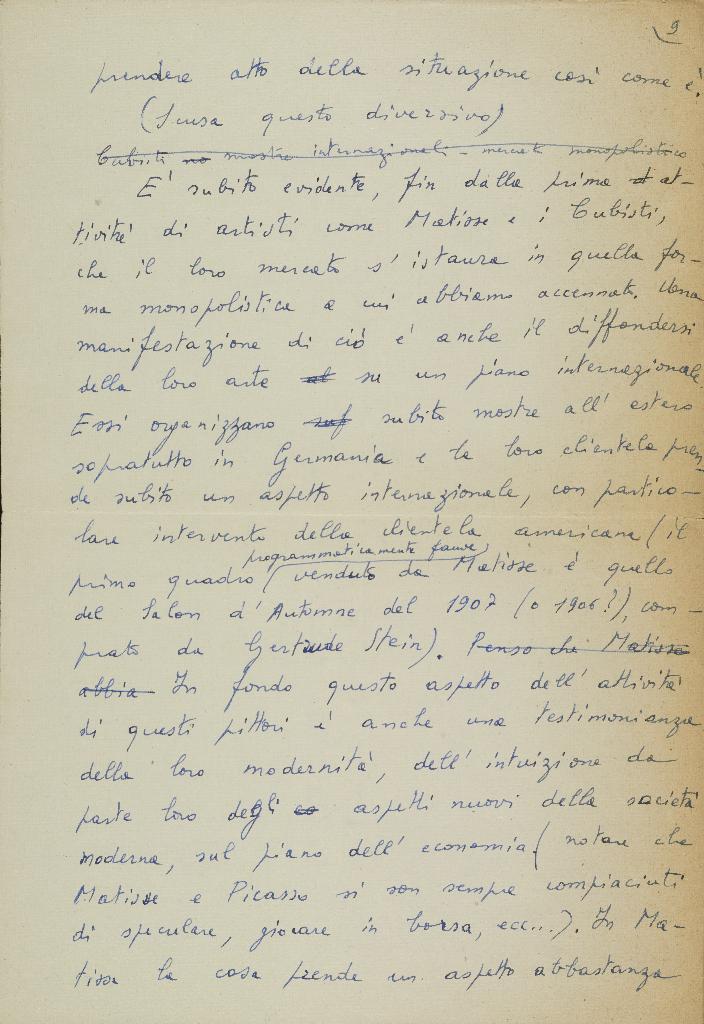 9
prendere atto della situazione così come è.
(Scusa questo diversivo)
Cubisti no mostre internazionali - mercato monopolistico
E' subito evidente, fin dalla prima at-
tività di artisti come Matisse e i Cubisti,
che il loro mercato s'istaura in quella for-
ma monopolistica a cui abbiamo accennato. Una
manifestazione di ciò è anche il diffondersi
della loro arte al su un piano internazionale.
Essi organizzano suf subito mostre all'estero
sopratutto in Germania e la loro clientela pren-
de subito un aspetto internazionale, con partico-
lare intervento della clientela americana (il
programmaticamente fauve
primo quadro venduto da Matisse è quello
del Salon d'Automne del 1907 (o 1906?), com-
prato da Gertrude Stein). Penso che Matisse
abbia In fondo questo aspetto dell'attività
di questi pittori è anche una testimonianza
della loro modernità, dell'intuizione da
parte loro degli co aspetti nuovi della società
moderna, sul piano dell'economia (notare che
Matisse e Picasso si son sempre compiaciuti
di speculare, giocare in borsa, ecc...). In Ma-
tisse la cosa prende un aspetto abbastanza